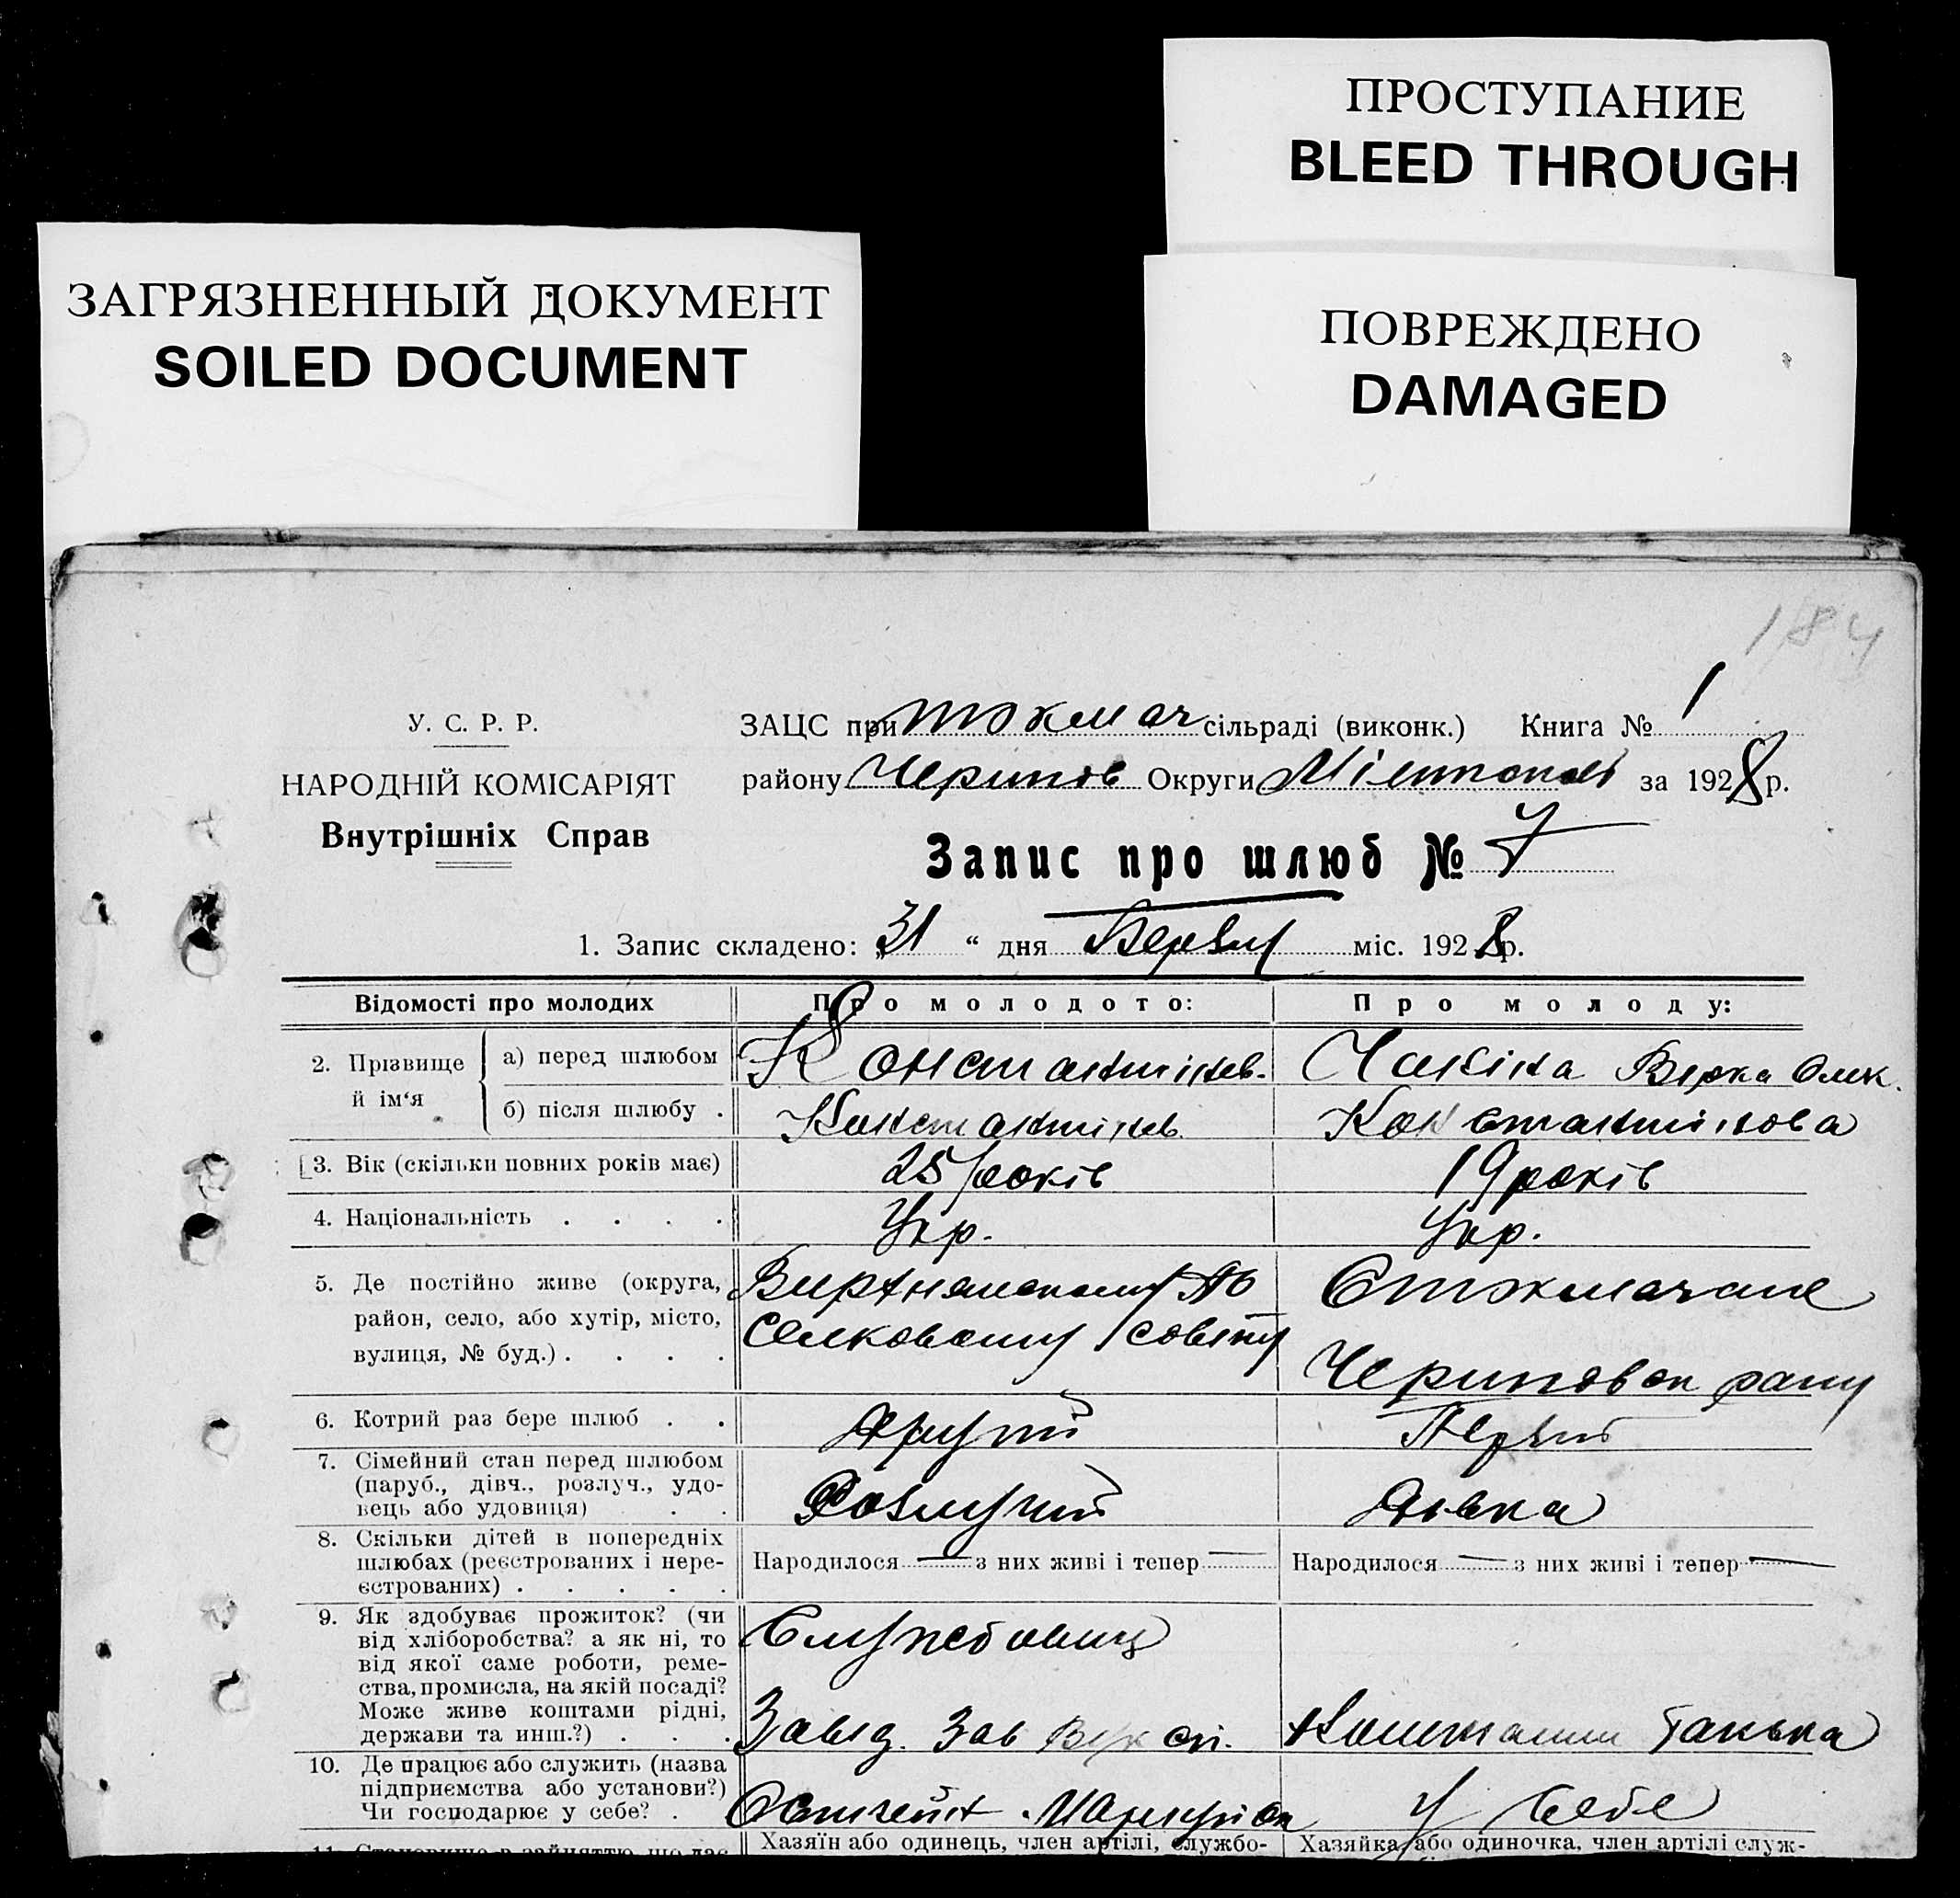 ПРОСТУПАНИЕ
BLEED THROUGH
ЗАГРЯЗНЕННЫЙ ДОКУМЕНТ
SOILED DOCUMENT
ПОВРЕЖДЕНО
DAMAGED
184
У. С. Р. Р.
НАРОДНІЙ КОМІСАРІЯТ
Внутрішніх Справ
ЗАЦС при Токмач сільраді (виконк.) Книга № 1
району Черниг Округи за 1928 р.
Запис про шлюб № 7
1. Запис складено: „31 “ дня міс. 1928 р.
Відомості про молодих
Про молодого:
Про молоду:
2. Прізвище й ім‘я
а) перед шлюбом
Константінов.
Чакіна Вірка Олек.
б) після шлюбу .
Константінов.
Константінова
3. Вік (скільки повних років має)
25 років
19 років
4. Національність . . . .
Укр.
Укр.
5. Де постійно живе (округа,
район, село, або хутір, місто,
вулиця, № буд.) . . . .
6. Котрий раз бере шлюб . .
Другий
Первий
7. Сімейний стан перед шлюбом
(паруб., дівч., розлуч., удо-
вець або удовиця) . .
Розлучий
Дівка
8. Скільки дітей в попередніх
шлюбах (реєстрованих і нере-
єстрованих) . . . . .
Народилося — з них живі і тепер —
Народилося — з них живі і тепер —
9. Як здобуває прожиток? (чи
від хліборобства? а як ні, то
від якої саме роботи, реме-
ства, промисла, на якій посаді?
Може живе коштами рідні,
держави та инш.?) . . .
Службовиц
Завід. Зав
Коштами батька
10. Де працює або служить (назва
підприємства або установи?)
Чи господарює у себе? .
У себе
Хазяїн або одинець, член артілі, службо-
Хазяйка, або одиночка, член артілі служ-